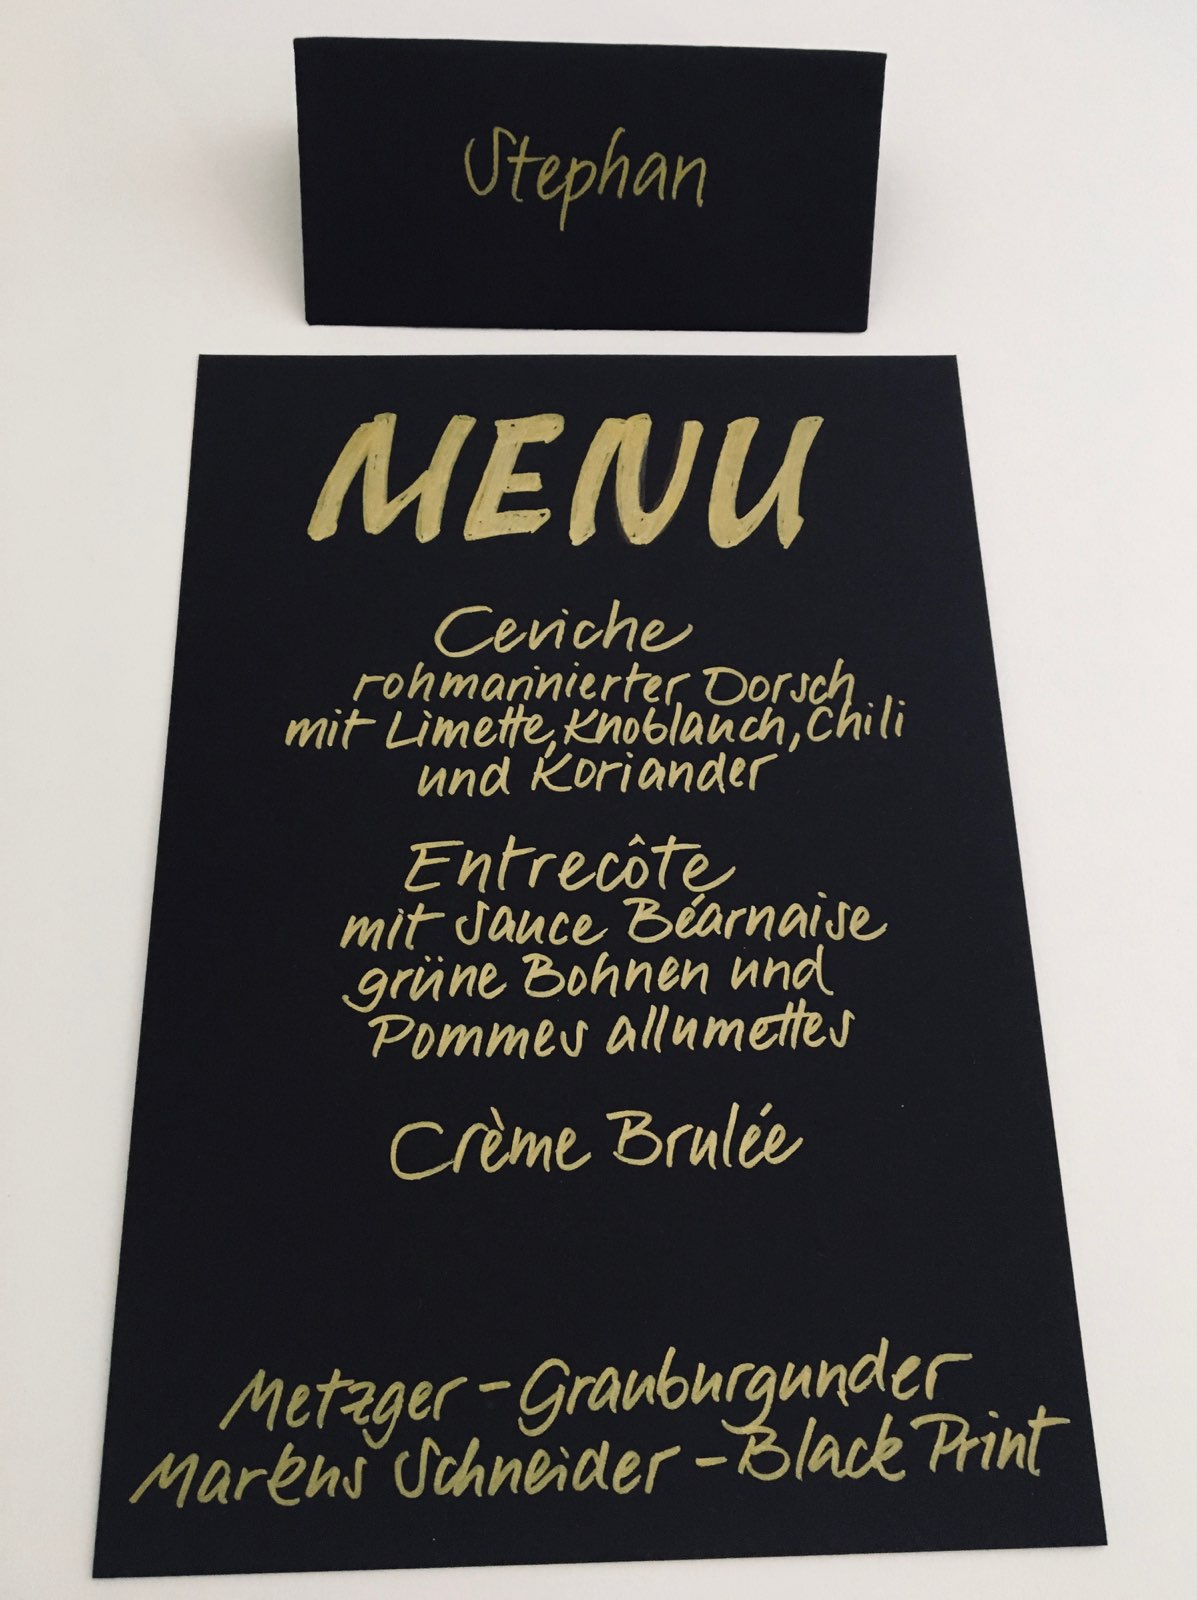 Stephan
MENU
Ceviche
rohmarinierter Dorsch
mit Limette, Knoblauch, Chili
und Koriander
Entrecôte
mit Sauce Béarnaise
grüne Bohnen und
Pommes allumettes
Crème Brulée
Metzger - Grauburgunder
Markus Schneider - Black Print